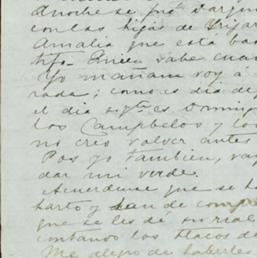 Anoche se fué Dargen
con las hijas de
Amalia que está bas
tifo. Quien sabe cuan
Yo mañana voy á
rada; como es dia de
el dia sigte es Doming
los Campbelos y los
no creo volver antes
Pas yo tambien, va
dar mi verde.
Acuerdense que se ha
harto y han de comp
que se les dé su real
contando los tlacos de
Me alegro de haberles